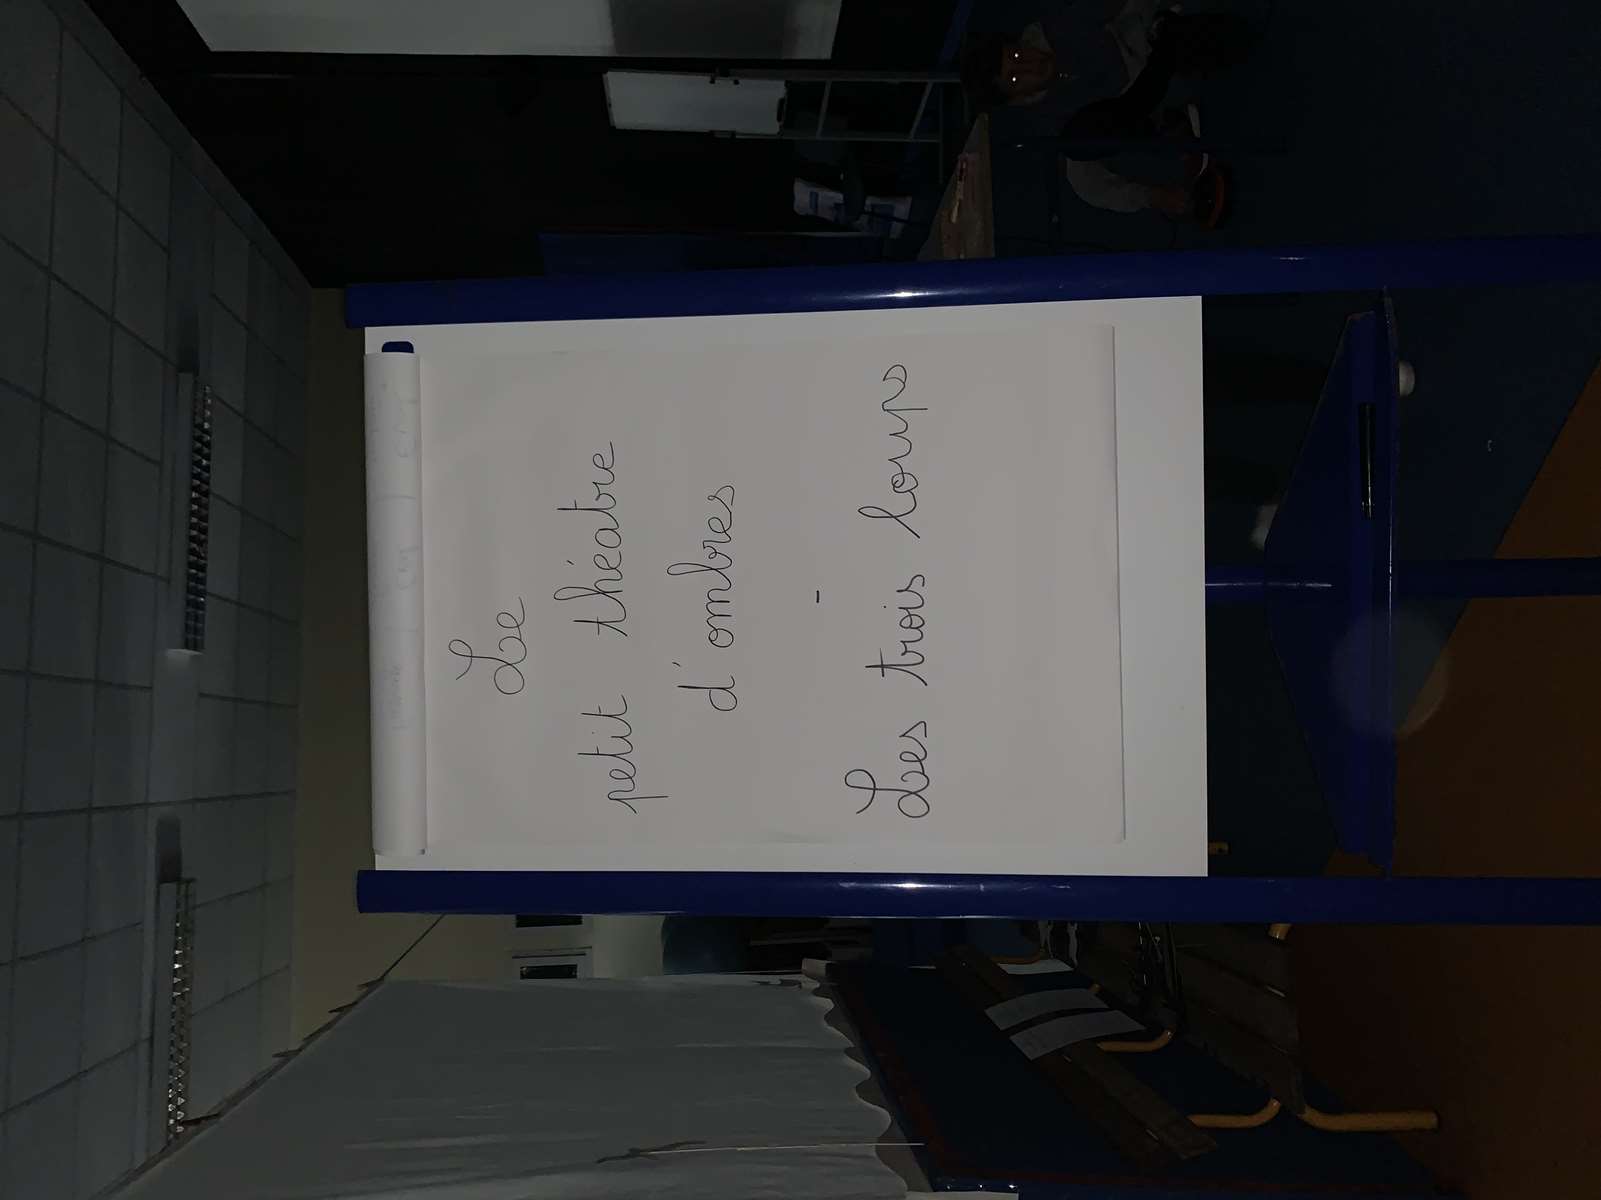 Le
petit théatre
d'ombres
-
Les trois loups